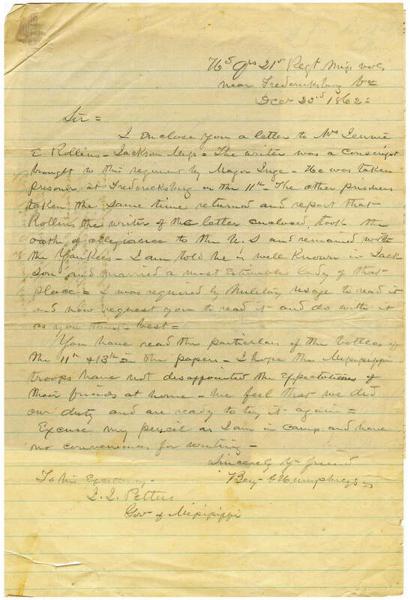 Hd Qrs 21st Regt Miss vols
near Fredericksburg Va
Decr 23rd 1862 =
Sir =
I enclose you a letter to Mrs Jennie
E Rollins - Jackson Miss = The writer was a conscript
brought to this regiment by Major Inge = He was taken
prisoner at Fredericksburg on the 11th The other prisoners
taken the same time returned and report that
Rollins the writer of the letter enclosed took the
oath of allegiance to the U. S and remained with
the Yankees - I am told he is well known in Jack
son and married a most estimable lady of that
place = I was required by military usage to read it
and now request you to read it and do with it
as you think best =
You have read the particulars of the battles of
the 11th & 13th in the papers - I hope the Mississippi
troops have not disappointed the expectations of
their friends at home - We feel that we did
our duty and are ready to try it again =
Excuse my pencil as I am in camp and have
no conveniences for writing -
Sincerely yr friend
Benj G Humphreys
To his Excellency
J. J. Pettus
Gov of Mississippi